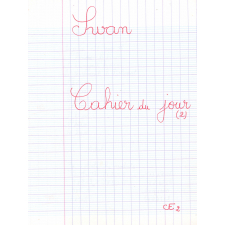 Swan
Cahier du jour
(2)
CE2